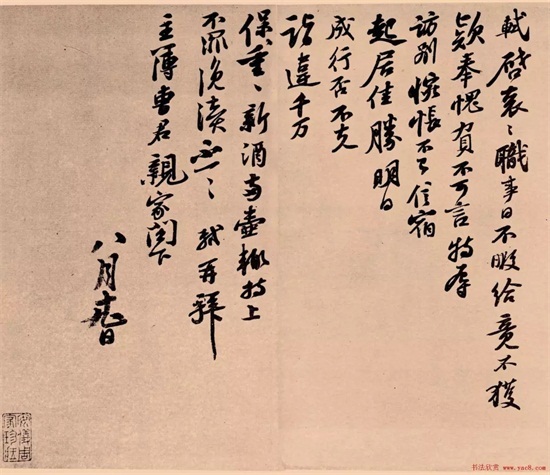 軾啓衮〻職事日不暇給竟不獲
款奉愧負不可言特辱
訪別惋悵不已信宿
起居佳勝明日
成行否不克
詣違千万
保重〻新酒兩壺輒持上
不罪浼瀆不一〻軾再拜
主簿曹君親家閤下
八月日
书法欣赏 www.yac8.com